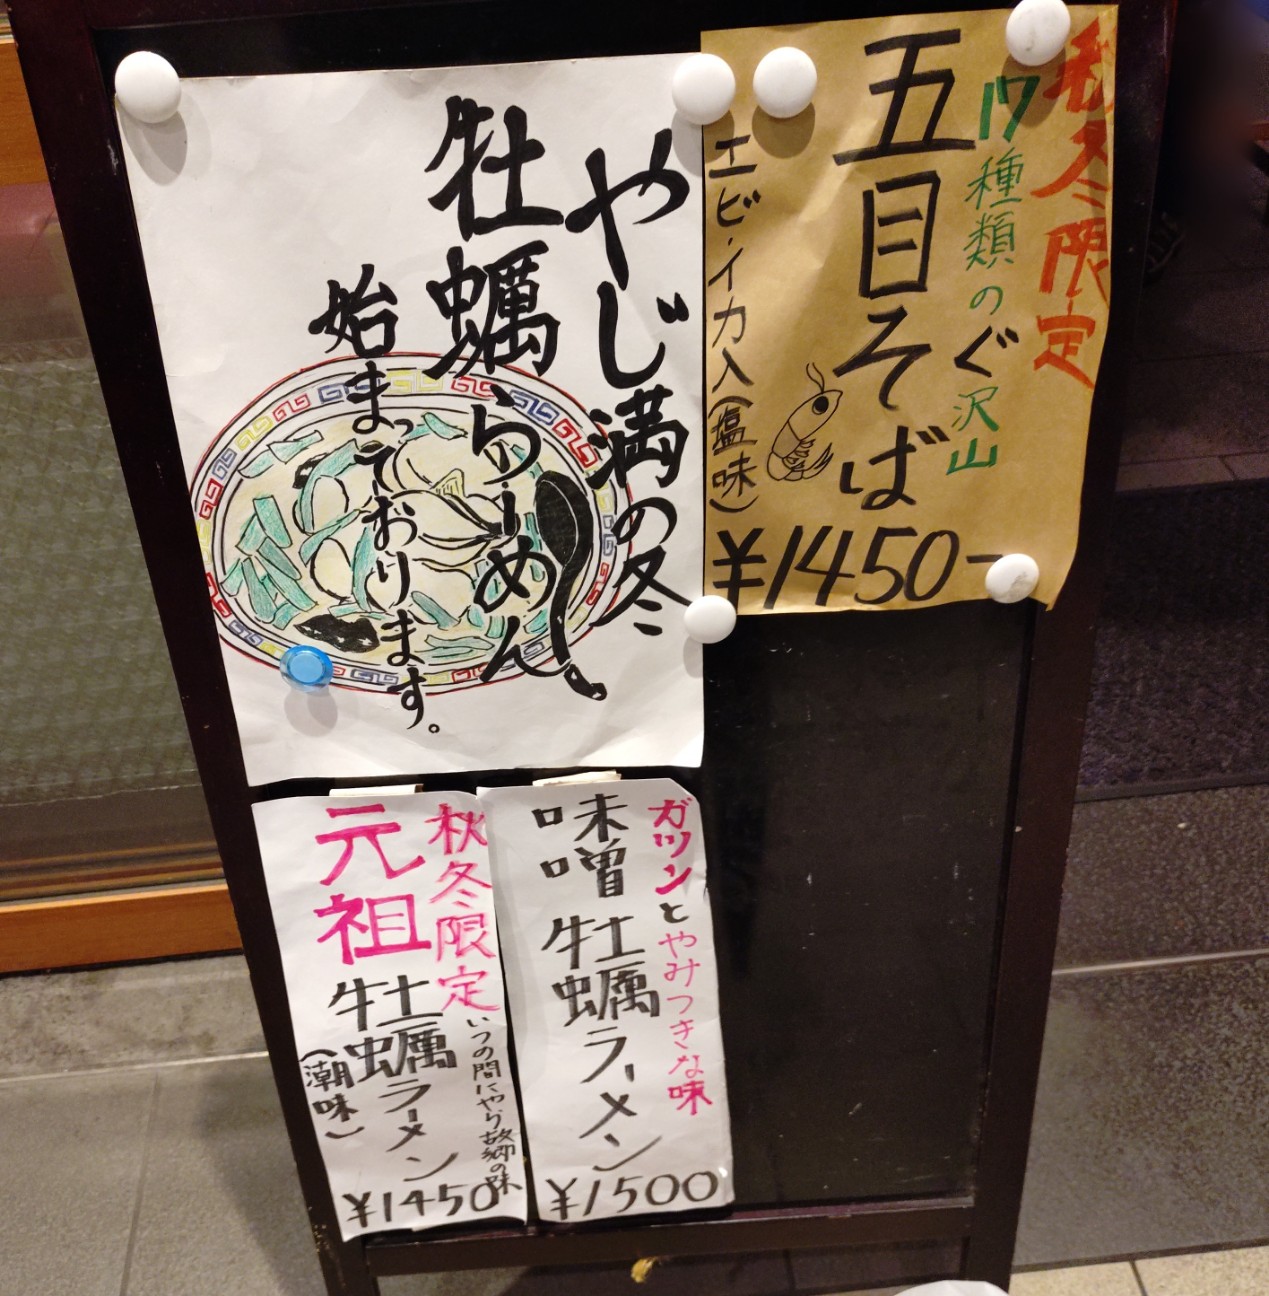 やじ満の冬
牡蠣らーめん
始まっております。
秋冬限定
17種類のぐ沢山
五目そば
エビ・イカ入(塩味)
¥1450-
ガツンとやみつきな味
味噌牡蠣ラーメン
¥1500
秋冬限定
いつの間にやら故郷の味
元祖牡蠣ラーメン
(潮味)
¥1450